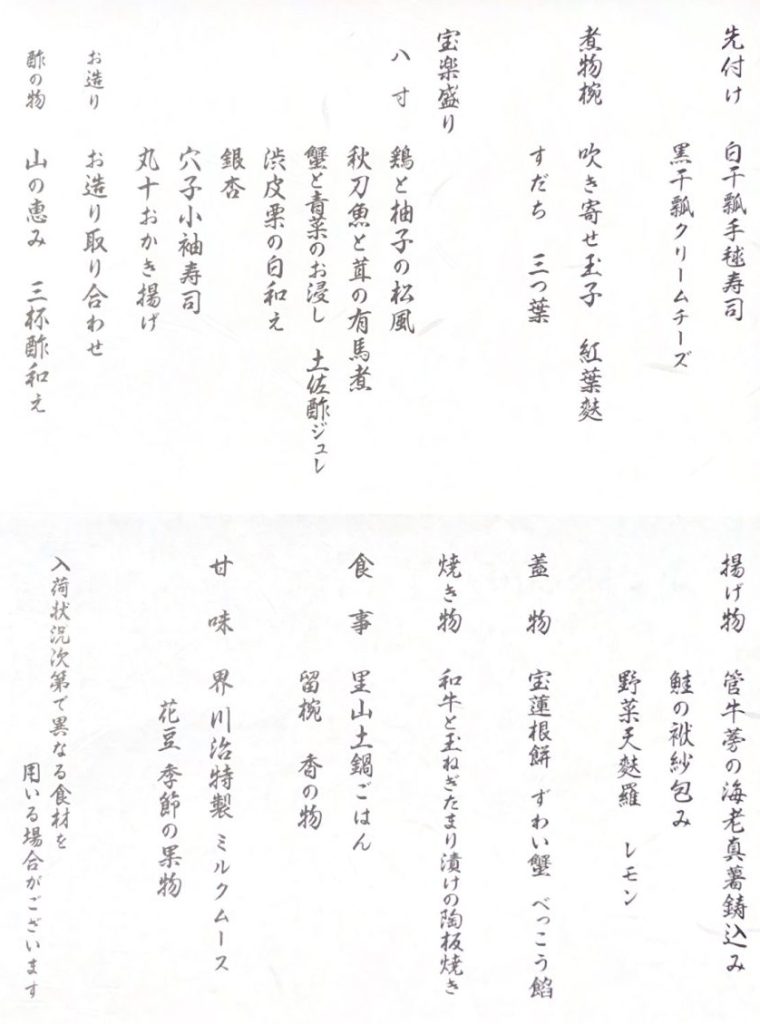 先付け　白干瓢手毬寿司
黒干瓢クリームチーズ
煮物椀　吹き寄せ玉子　紅葉麩
すだち　三つ葉
宝楽盛り
八寸　鶏と柚子の松風
秋刀魚と茸の有馬煮
蟹と青菜のお浸し　土佐酢ジュレ
渋皮栗の白和え
銀杏
穴子小袖寿司
丸十おかき揚げ
お造り　お造り取り合わせ
酢の物　山の恵み　三杯酢和え
揚げ物　管牛蒡の海老真薯鋳込み
鮭の袱紗包み
野菜天麩羅　レモン
蓋物　宝蓮根餅　ずわい蟹　べっこう餡
焼き物　和牛と玉ねぎたまり漬けの陶板焼き
食事　里山土鍋ごはん
留椀　香の物
甘味　界川治特製　ミルクムース
花豆　季節の果物
入荷状況次第で異なる食材を
用いる場合がございます